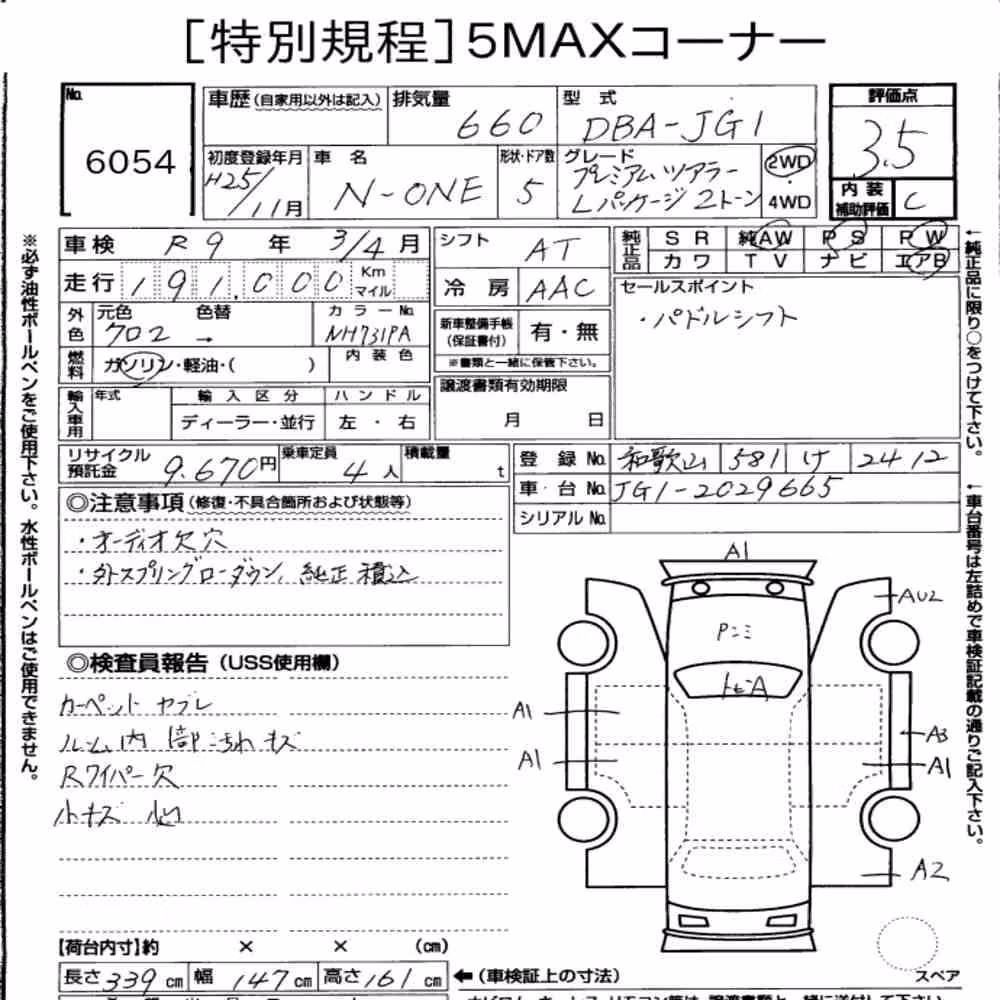 [特別規程]5MAXコーナー
No. 6054
車歴(自家用以外は記入) 排気量 660 型式 DBA-JG1
評価点 3.5
初度登録年月 H25/11月 車名 N-ONE 形状・ドア数 5 グレード プレミアムツアラー Lパッケージ 2トーン 2WD・4WD
内装補助評価 C
車検 R9年 3/4月 シフト AT 純正品 SR 純AW PS PW
カワ TV ナビ エアB
走行 191,000 Km マイル 冷房 AAC セールスポイント
・パドルシフト
外色 元色 クロ2 色替 → カラーNo. NH731PA 新車整備手帳(保証書付) 有・無
※書類と一緒に保管下さい。
燃料 ガソリン・軽油・( ) 内装色
譲渡書類有効期限 月 日
輸入車用 年式 輸入区分 ハンドル
ディーラー・並行 左・右
リサイクル預託金 9,670円 乗車定員 4人 積載量 t
登録No. 和歌山 581 け 2412
車台No. JG1-2029665
シリアルNo.
◎注意事項(修復・不具合箇所および状態等)
・オーディオ欠穴
・外スプリングローダウン、純正積込
◎検査員報告(USS使用欄)
カーペットヤブレ
ルーム内部汚れキズ
Rワイパー欠
小キズ 凹
A1
AU2
Pコミ
トビA
A1
A3
A1
A1
A2
スペア
【荷台内寸】約 × × (cm)
長さ339cm 幅147cm 高さ161cm ←(車検証上の寸法)
※必ず油性ボールペンをご使用下さい。水性ボールペンはご使用できません。
←純正品に限り○をつけて下さい。
←車台番号は左詰めで車検証記載の通りご記入下さい。